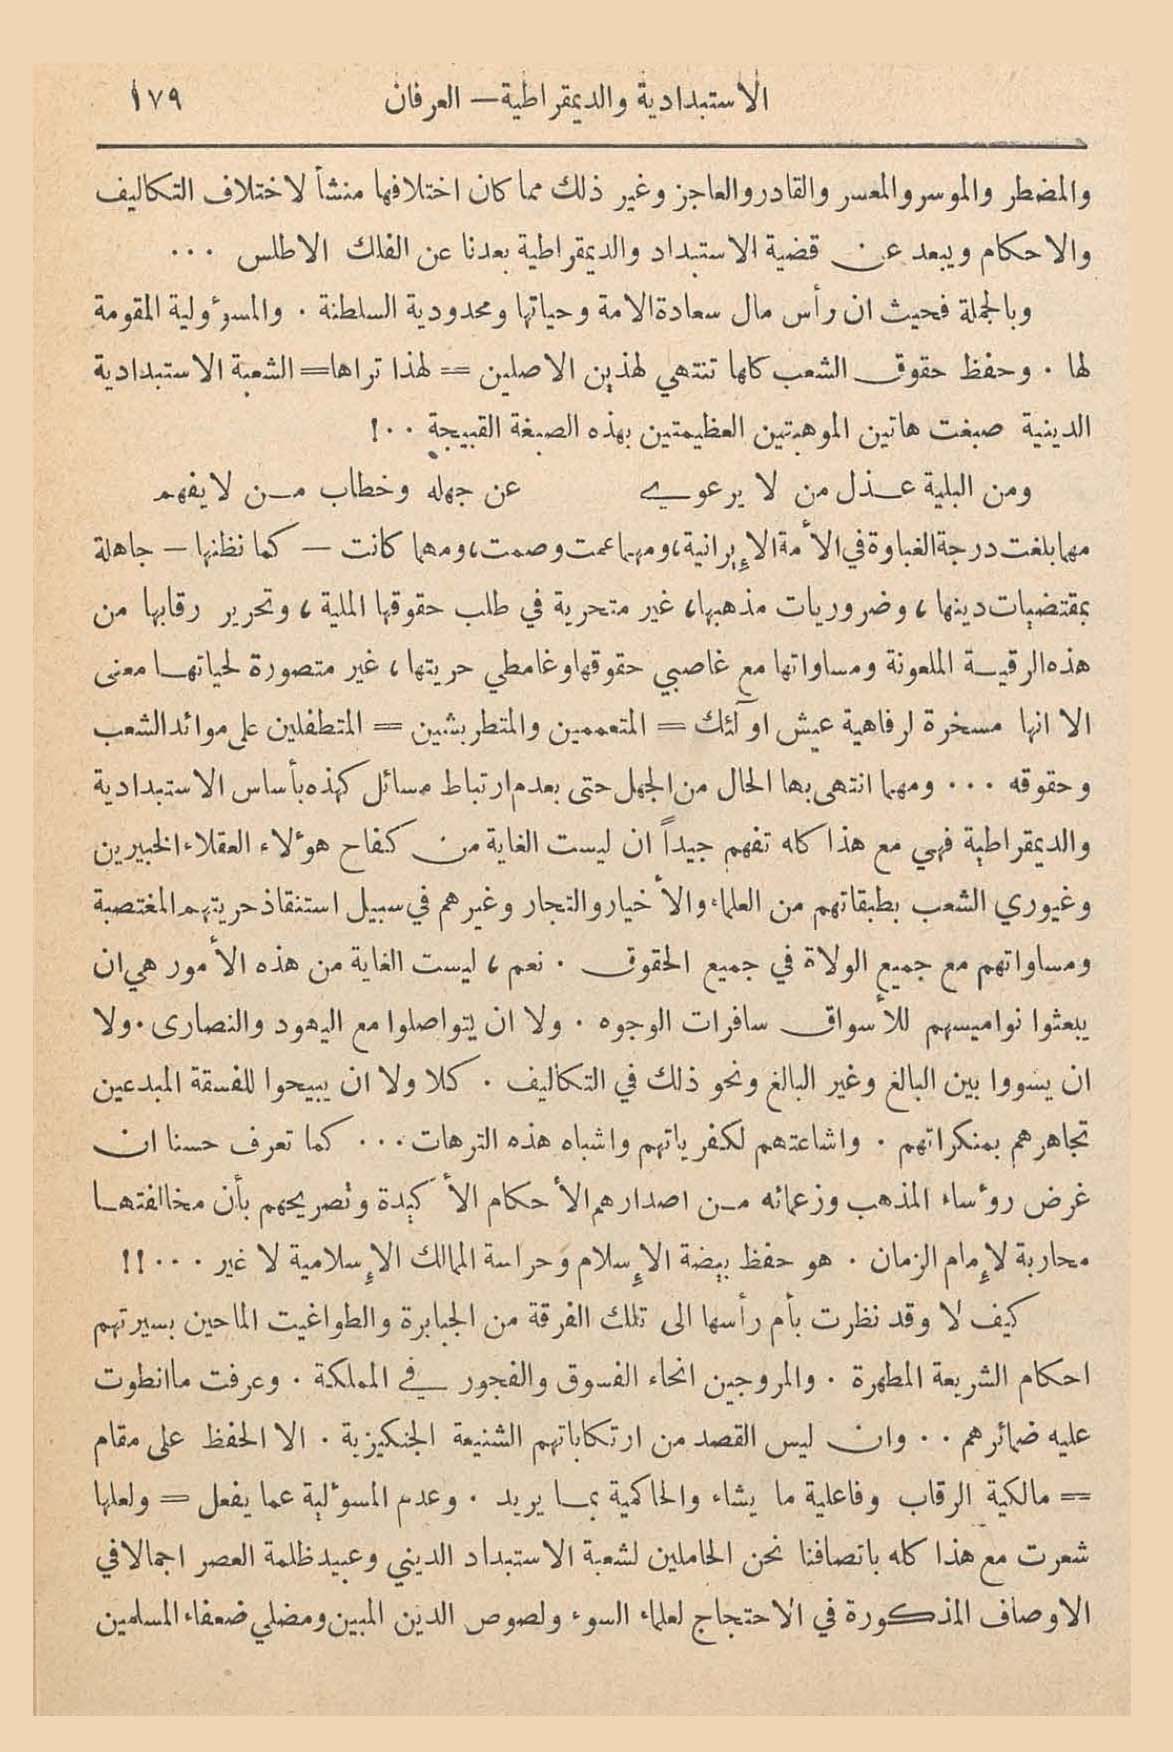 الاستبدادية والديمقراطية — العرفان ١٧٩
والمضطر والموسر والمعسر والقادر والعاجز وغير ذلك مما كان اختلافها منشأ لاختلاف التكاليف
والاحكام ويبعد عن قضية الاستبداد والديمقراطية بعدنا عن الفلك الاطلس ...
وبالجملة فحيث ان رأس مال سعادة الامة وحياتها ومحدودية السلطنة . والمسؤولية المقومة
لها . وحفظ حقوق الشعب كلها تنتهي لهذين الاصلين = لهذا تراها = الشعبة الاستبدادية
الدينية صبغت هاتين الموهبتين العظيمتين بهذه الصبغة القبيحة ..!
ومن البلية عذل من لا يرعوي عن جهله وخطاب من لا يفهم
مهما بلغت درجة الغباوة في الأمة الإيرانية، ومهما عمت وصمت، ومهما كانت — كما نظنها — جاهلة
بمقتضيات دينها، وضروريات مذهبها، غير متحرية في طلب حقوقها الملية، وتحرير رقابها من
هذه الرقيـة الملعونة ومساواتها مع غاصبي حقوقها وغامطي حريتها، غير متصورة لحياتها معنى
الا انها مسخرة لرفاهية عيش اولآئك = المتعممين والمتطربشين = المتطفلين على موائد الشعب
وحقوقه ... ومهما انتهى بها الحال من الجهل حتى بعدم ارتباط مسائل كهذه بأساس الاستبدادية
والديمقراطية فهي مع هذا كله تفهم جيداً ان ليست الغاية من كفاح هؤلاء العقلاء الخبيرين
وغيوري الشعب بطبقاتهم من العلماء والأخيار والتجار وغيرهم في سبيل استنقاذ حريتهم المغتصبة
ومساواتهم مع جميع الولاة في جميع الحقوق . نعم، ليست الغاية من هذه الأمور هي ان
يبعثوا نواميسهم للأسواق سافرات الوجوه . ولا ان يتواصلوا مع اليهود والنصارى . ولا
ان يسووا بين البالغ وغير البالغ ونحو ذلك في التكاليف . كلا ولا ان يبيحوا للفسقة المبدعين
تجاهرهم بمنكراتهم . واشاعتهم لكفرياتهم واشباه هذه الترهات ... كما تعرف حسنا ان
غرض رؤساء المذهب وزعمائه من اصدارهم الأحكام الأكيدة وتصريحهم بأن مخالفتها
محاربة لإمام الزمان . هو حفظ بيضة الإسلام وحراسة الممالك الإسلامية لا غير ...!!
كيف لا وقد نظرت بأم رأسها الى تلك الفرقة من الجبابرة والطواغيت الماحين بسيرتهم
احكام الشريعة المطهرة . والمروجين انحاء الفسوق والفجور في المملكة . وعرفت ما انطوت
عليه ضمائرهم .. وان ليس القصد من ارتكاباتهم الشنيعة الجنكيزية . الا الحفظ على مقام
= مالكية الرقاب وفاعلية ما يشاء والحاكمية بما يريد . وعدم المسؤلية عما يفعل = ولعلها
شعرت مع هذا كله باتصافنا نحن الحاملين لشعبة الاستبداد الديني وعبيد ظلمة العصر اجمالا في
الاوصاف المذكورة في الاحتجاج لعلماء السوء ولصوص الدين المبين ومضلي ضعفاء المسلمين